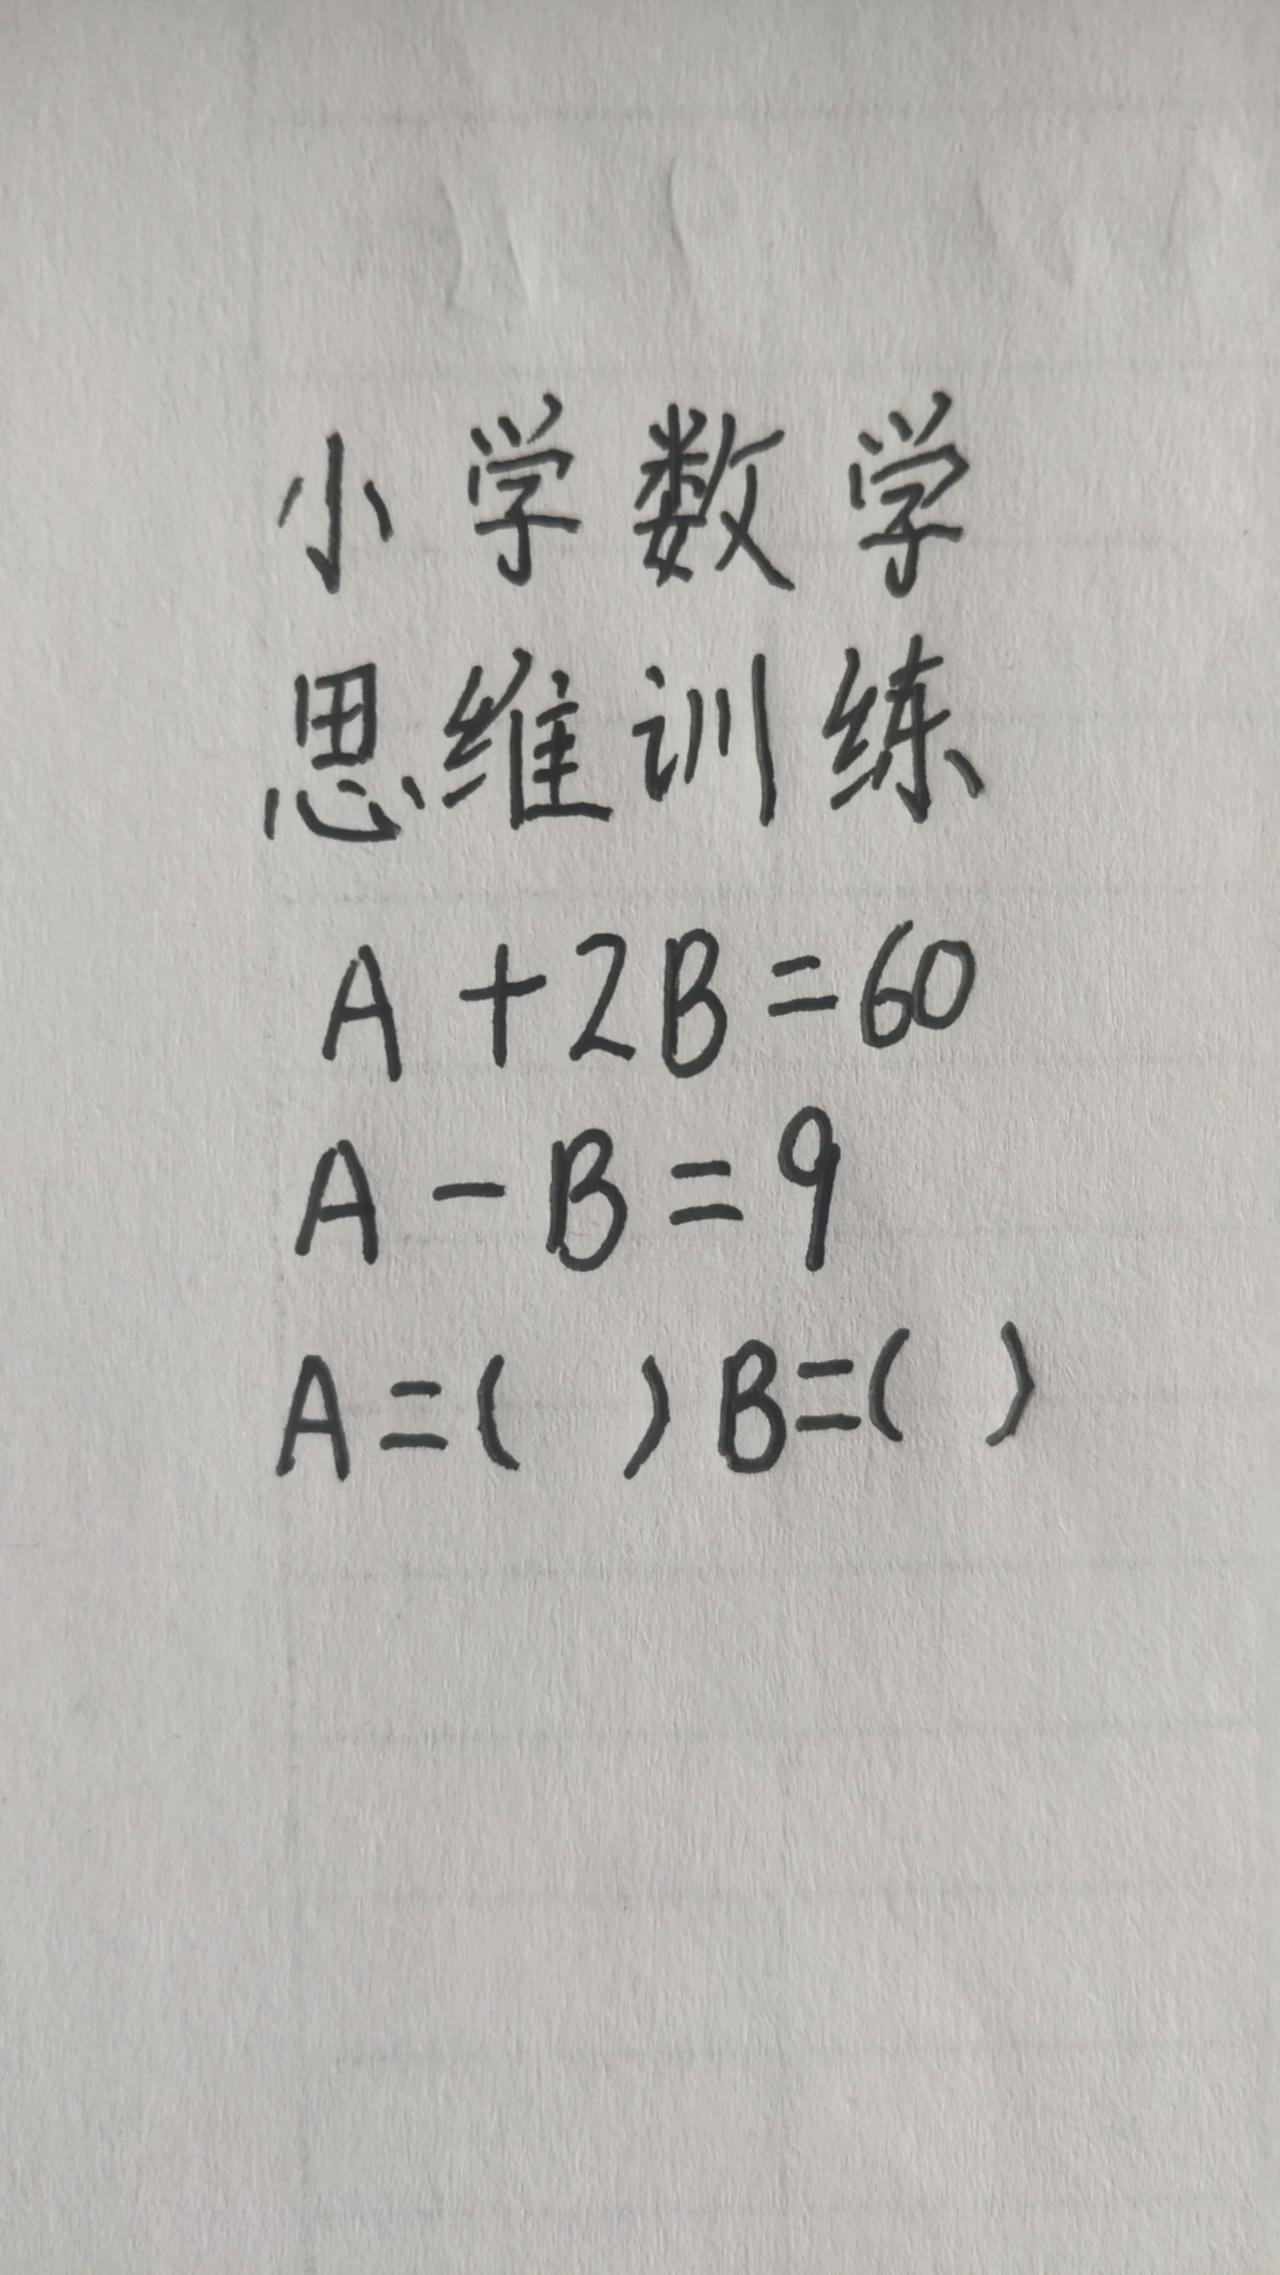 小学数学
思维训练
A+2B=60
A-B=9
A=( ) B=( )